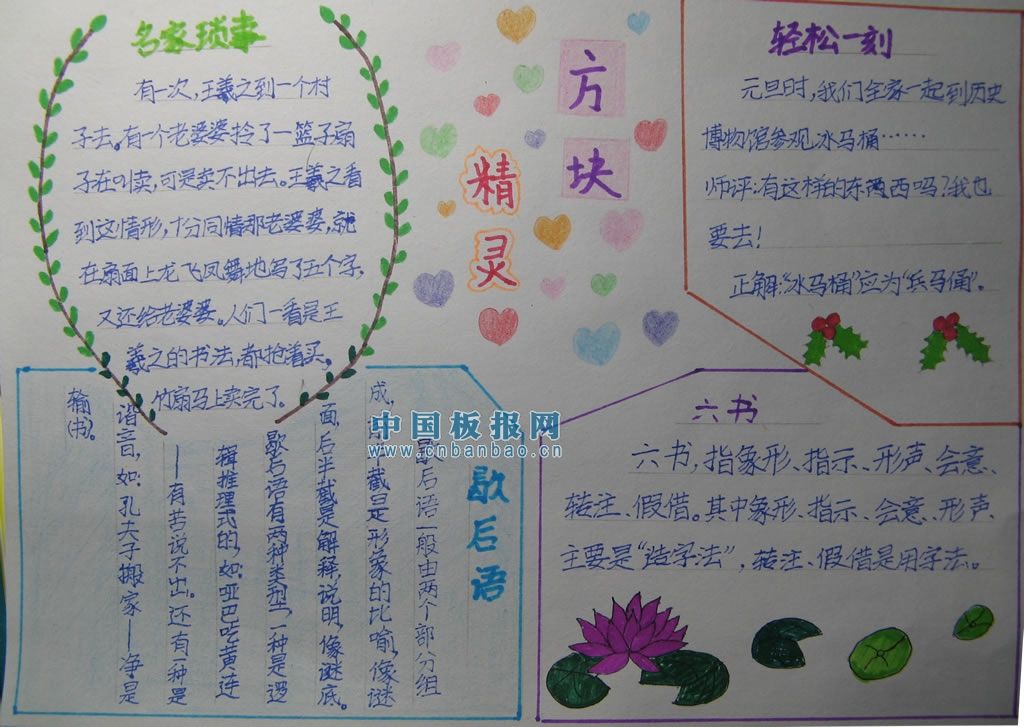 名家琐事
有一次,王羲之到一个村
子去。有一个老婆婆拎了一篮子扇
子在叫卖,可是卖不出去。王羲之看
到这情形,十分同情那老婆婆,就
在扇面上龙飞凤舞地写了五个字,
又还给老婆婆。人们一看是王
羲之的书法,都抢着买,
竹扇马上卖完了。
方块
精灵
轻松一刻
元旦时,我们全家一起到历史
博物馆参观冰马桶……
师评:有这样的东西吗?我也
要去!
正解:“冰马桶”应为“兵马俑”。
歇后语
歇后语一般由两个部分组
成,前半截是形象的比喻,像谜
面,后半截是解释,说明,像谜底。
歇后语有两种类型,一种是逻
辑推理式的,如,哑巴吃黄连
——有苦说不出。还有一种是
谐音,如:孔夫子搬家——净是
输(书)。
六书
六书,指象形、指示、形声、会意、
转注、假借。其中象形、指示、会意、形声
主要是“造字法”,转注、假借是用字法。
中国板报网
www.cnbanbao.cn